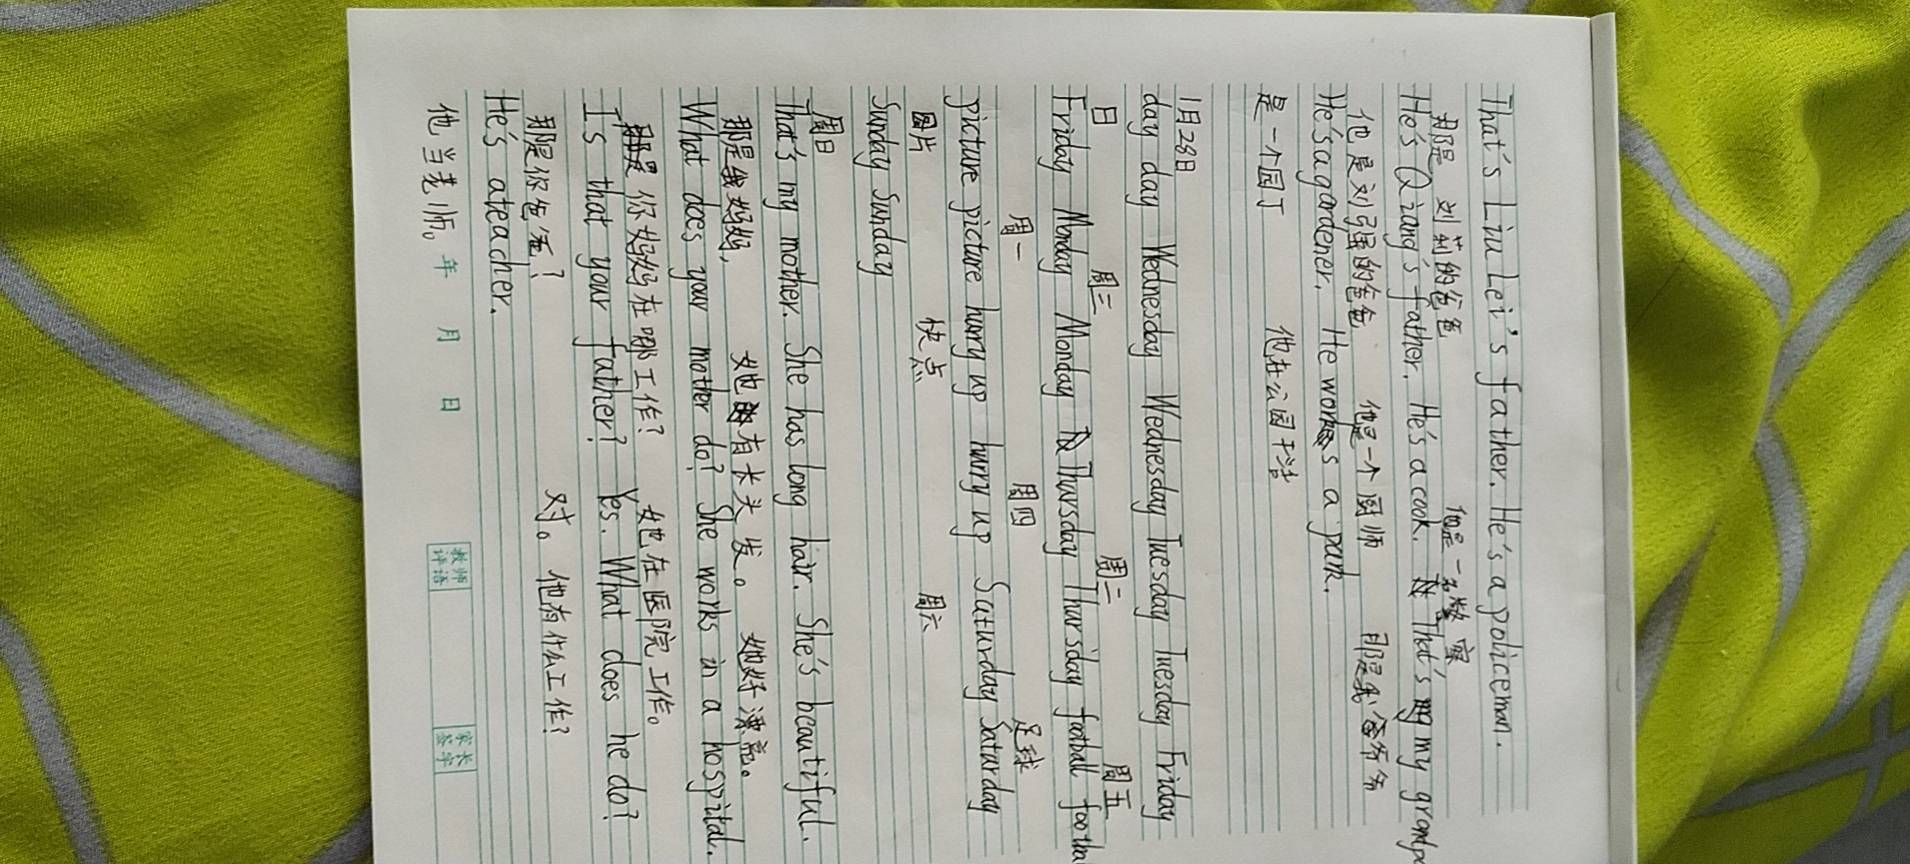 That's Liu Lei's father. He's a policeman.
那是 刘莉的爸爸 他是一名
He's Qiang's father. He's a cook. That's my
他是刘强的爸爸 他是一个厨师 那是我爷爷
He's a gardener. He works a park.
是一个园丁 他在公园干活
1月28日
day day Wednesday Wednesday Tuesday Tuesday Friday
日 周三 周二 周五
Friday Monday Monday Thursday Thursday football
周一 周四 足球
picture picture hurry up hurry up Saturday Saturday
图片 快点 周六
Sunday Sunday
周日
That's my mother. She has long hair. She's beautiful.
那是我妈妈, 她有长头发。 她好漂亮。
What does your mother do? She works in a hospital.
你妈妈在哪工作? 她在医院工作。
Is that your father? Yes. What does he do?
那是你爸爸? 对。他有什么工作?
He's ateacher.
他当老师。 年 月 日
教师评语 家长签字